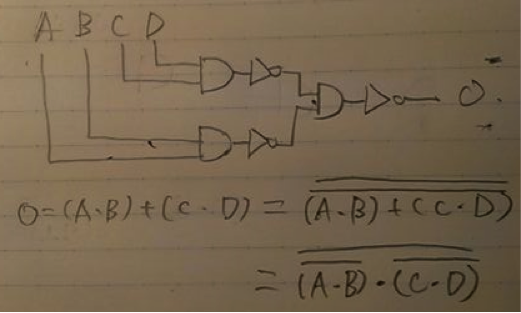 A B C D
O.
O=(A·B)+(C·D) = \overline{\overline{(A·B)+(C·D)}}
= \overline{\overline{(A·B)}·\overline{(C·D)}}